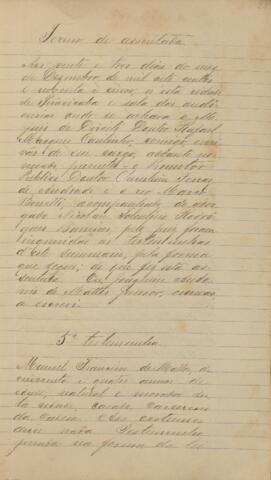 Termo de assentada
Aos vinte e tres dias do mez
de Dezembro de mil oito centos
e noventa e cinco, n'esta cidade
de Piracicaba e sala das audi
encias onde se achava o M.
Juiz de Direito Doutor Rafael
Marques Cantinho, comigo escri
vão de seu cargo, adiante no
meado, presente o Promotor
Publico Doutor Christiano
de Andrade e o réo Marco
acompanhado de advo
gado Nicolau Tolentino Rodri
gues Barreiros, pelo juiz foram
inqueridas as testemunhas
d'este summario, pela forma
que segue; do que fiz esta as
sentada. Eu, Joaquim
de Mattos Junior, escrivão,
a escrevi.
5ª testemunha
Manoel Francisco de Mattos, de
cincoenta e quatro annos de
idade, natural e morador de
ta cidade, casado, carcereiro
da cadeia e aos costumes
disse nada. Testemunha
jurada na forma da lei